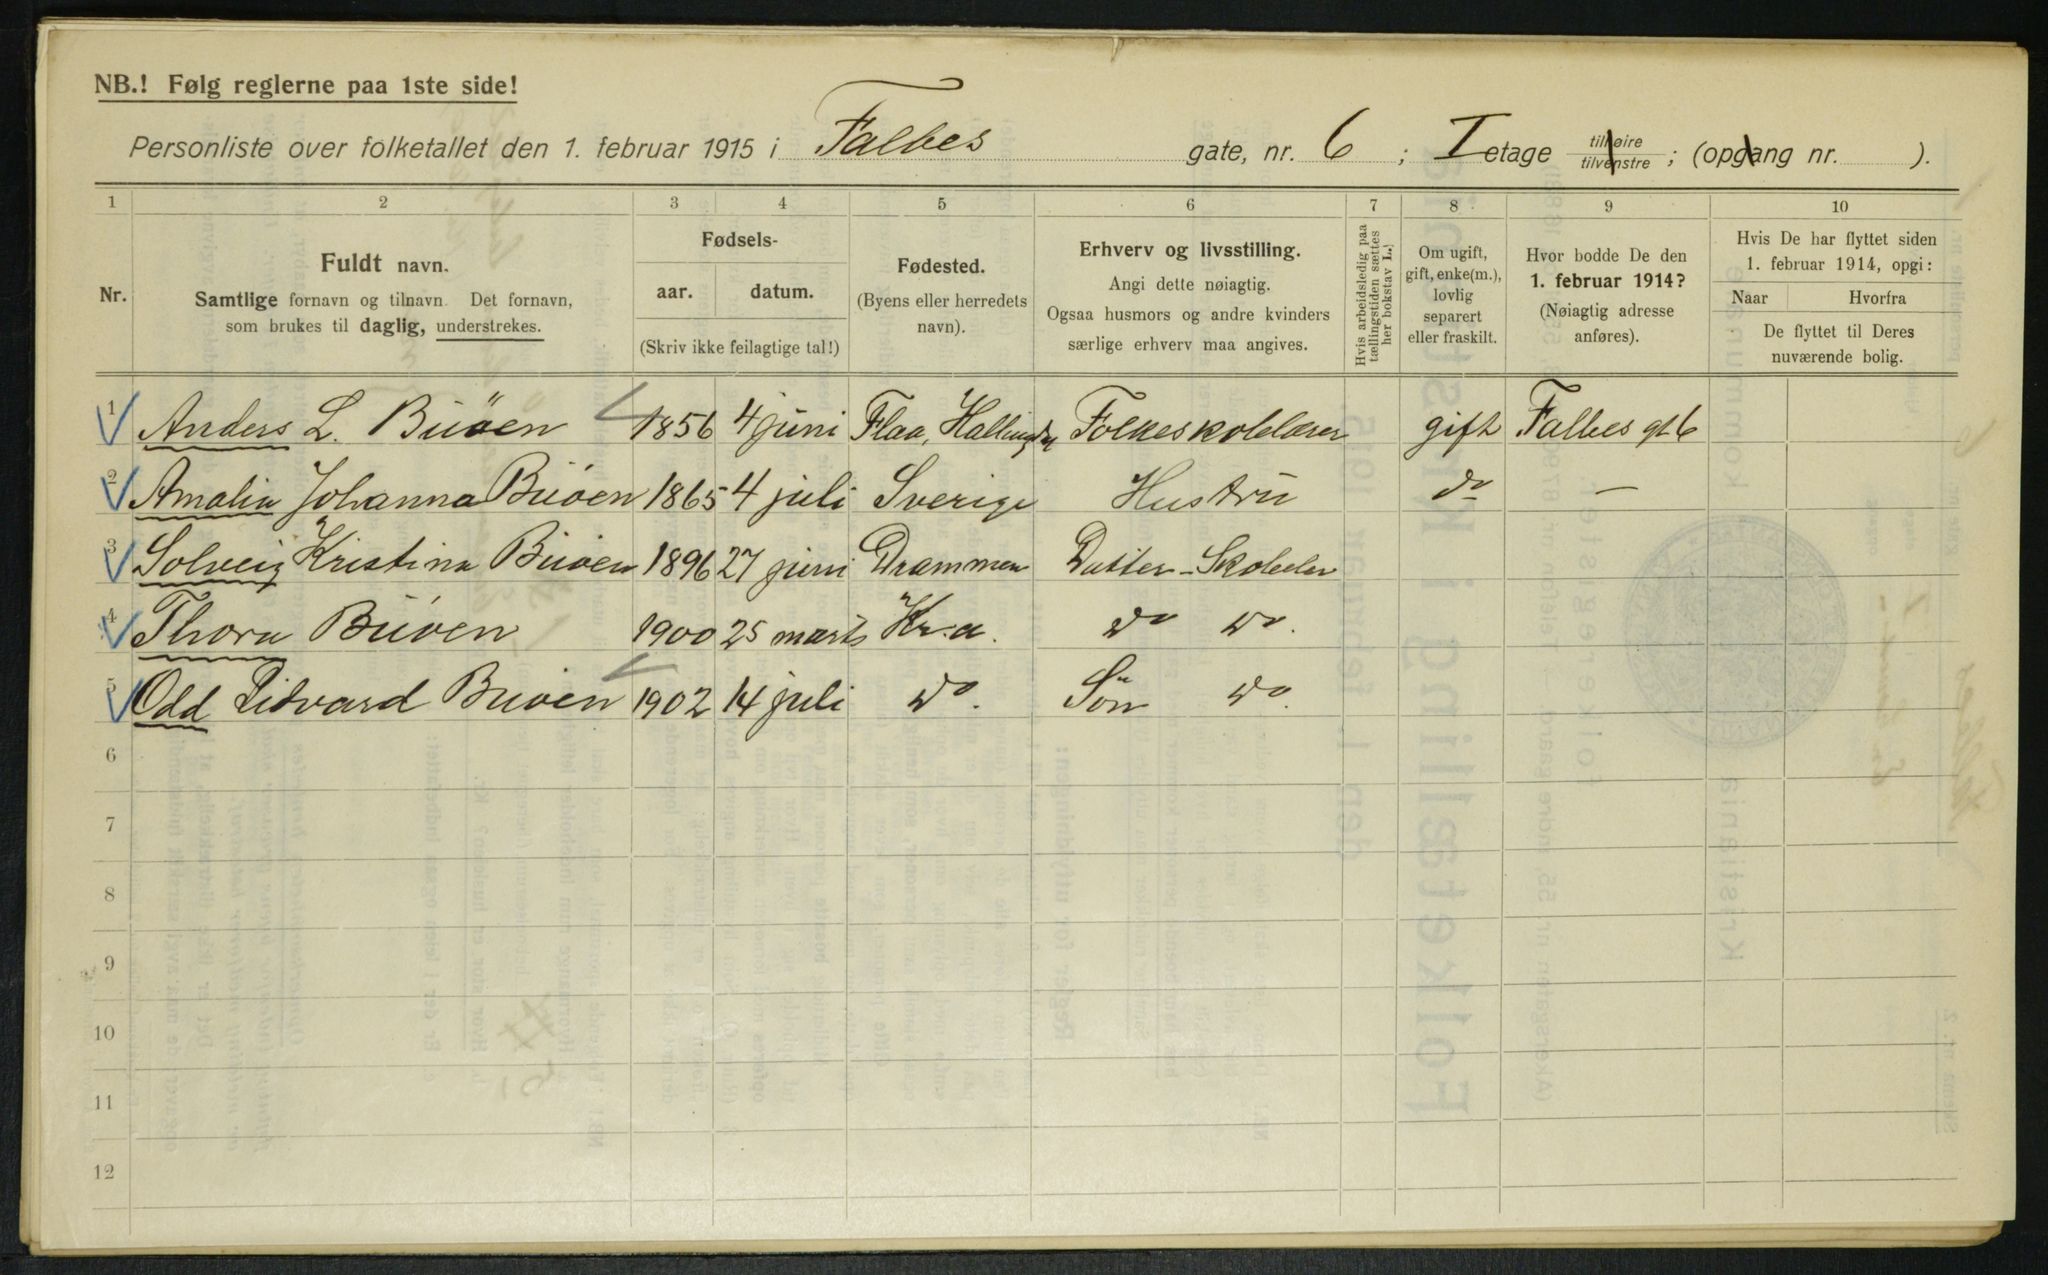 NB.! Følg reglerne paa 1ste side!
Personliste over folketallet den 1. februar 1915 i Falbes gate, nr. 6; I etage tilhøire tilvenstre; (opgang nr. ).
1 2 3 4 5 6 7 8 9 10
Nr.
Fuldt navn.
Samtlige fornavn og tilnavn. Det fornavn,
som brukes til daglig, understrekes.
Fødsels-
aar. datum.
(Skriv ikke feilagtige tal!)
Fødested.
(Byens eller herredets
navn).
Erhverv og livsstilling.
Angi dette nøiagtig.
Ogsaa husmors og andre kvinders
særlige erhverv maa angives.
Hvis arbeidsledig paa
tællingstiden sættes
her bokstav L.!
Om ugift,
gift, enke(m.),
lovlig
separert
eller fraskilt.
Hvor bodde De den
1. februar 1914?
(Nøiagtig adresse
anføres).
Hvis De har flyttet siden
1. februar 1914, opgi:
Naar Hvorfra
De flyttet til Deres
nuværende bolig.
1 Anders L. Büöen 1856 4 juni Flaa, Hallingdal Folkeskolelærer gift Falbes gt 6
2 Amalia Johanna Büöen 1865 4 juli Sverige Hustrü do —
3 Solveig Kristina Büöen 1896 27 juni Drammen Datter - Skoleelev
4 Thora Büöen 1900 25 marts Kr.a. do do.
5 Odd Edvard Buöen 1902 14 juli do. Sön do.
6
7
8
9
10
11
12